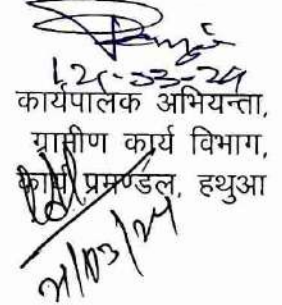 कार्यपालक अभियन्ता,
ग्रामीण कार्य विभाग,
कार्य प्रमण्डल, हथुआ
21/03/24